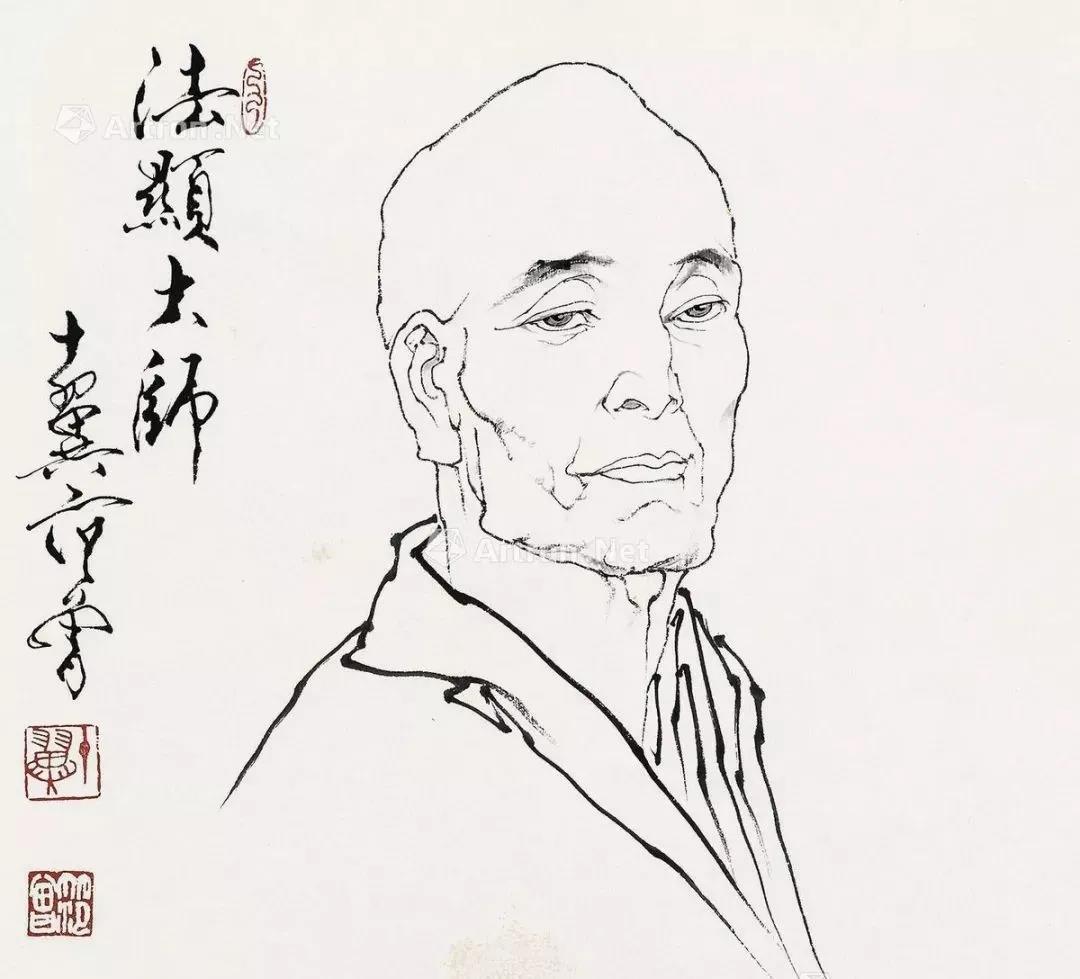 法顯大師
十翼范曾
十翼
范曾
Artron.Net
Artron.Net